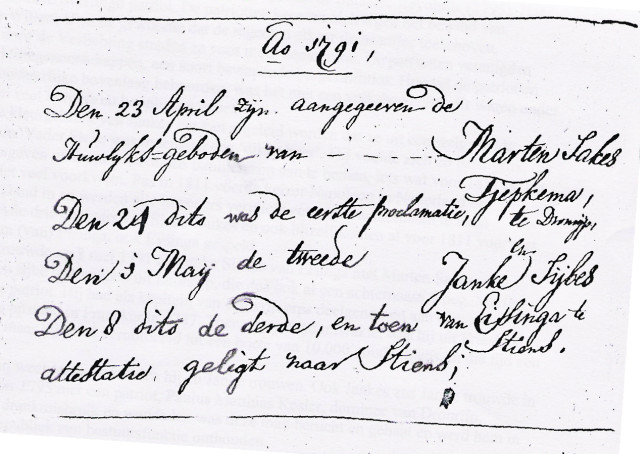 Ao 1791,
Den 23 April zijn aangegeeven de
Huwlyks=geboden van - - - - Marten Sakes
Tjepkema,
Den 24 dito was de eerste proclamatie, te Dronrijp,
en
Den 1 Maij de tweede Janke Sijbes
Den 8 dito de derde, en toen van Eissinga te
attestatie geligt naar Stiens; Stiens.